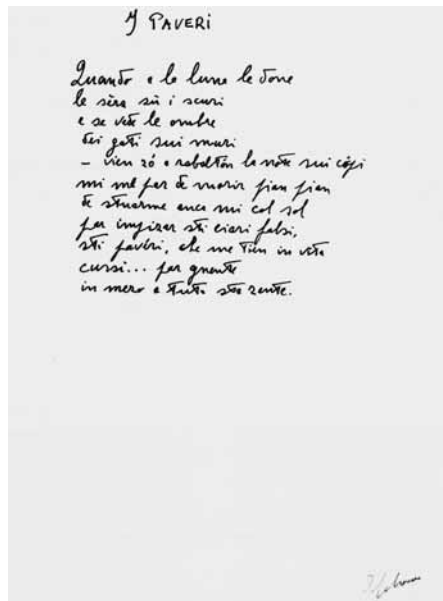 I PAVERI
Quando a la luna le done
le sèra sù i scuri
e se vede le ombre
dei gati sui muri
– vien zó a rabaltón la note sui còpi
mi me par de morir pian pian
de stuarme anca mi col sol
par impizar sti ciari falsi,
sti pavèri, che me tien in vita
cussì... par gnente
in mezo a tuta sta zente.